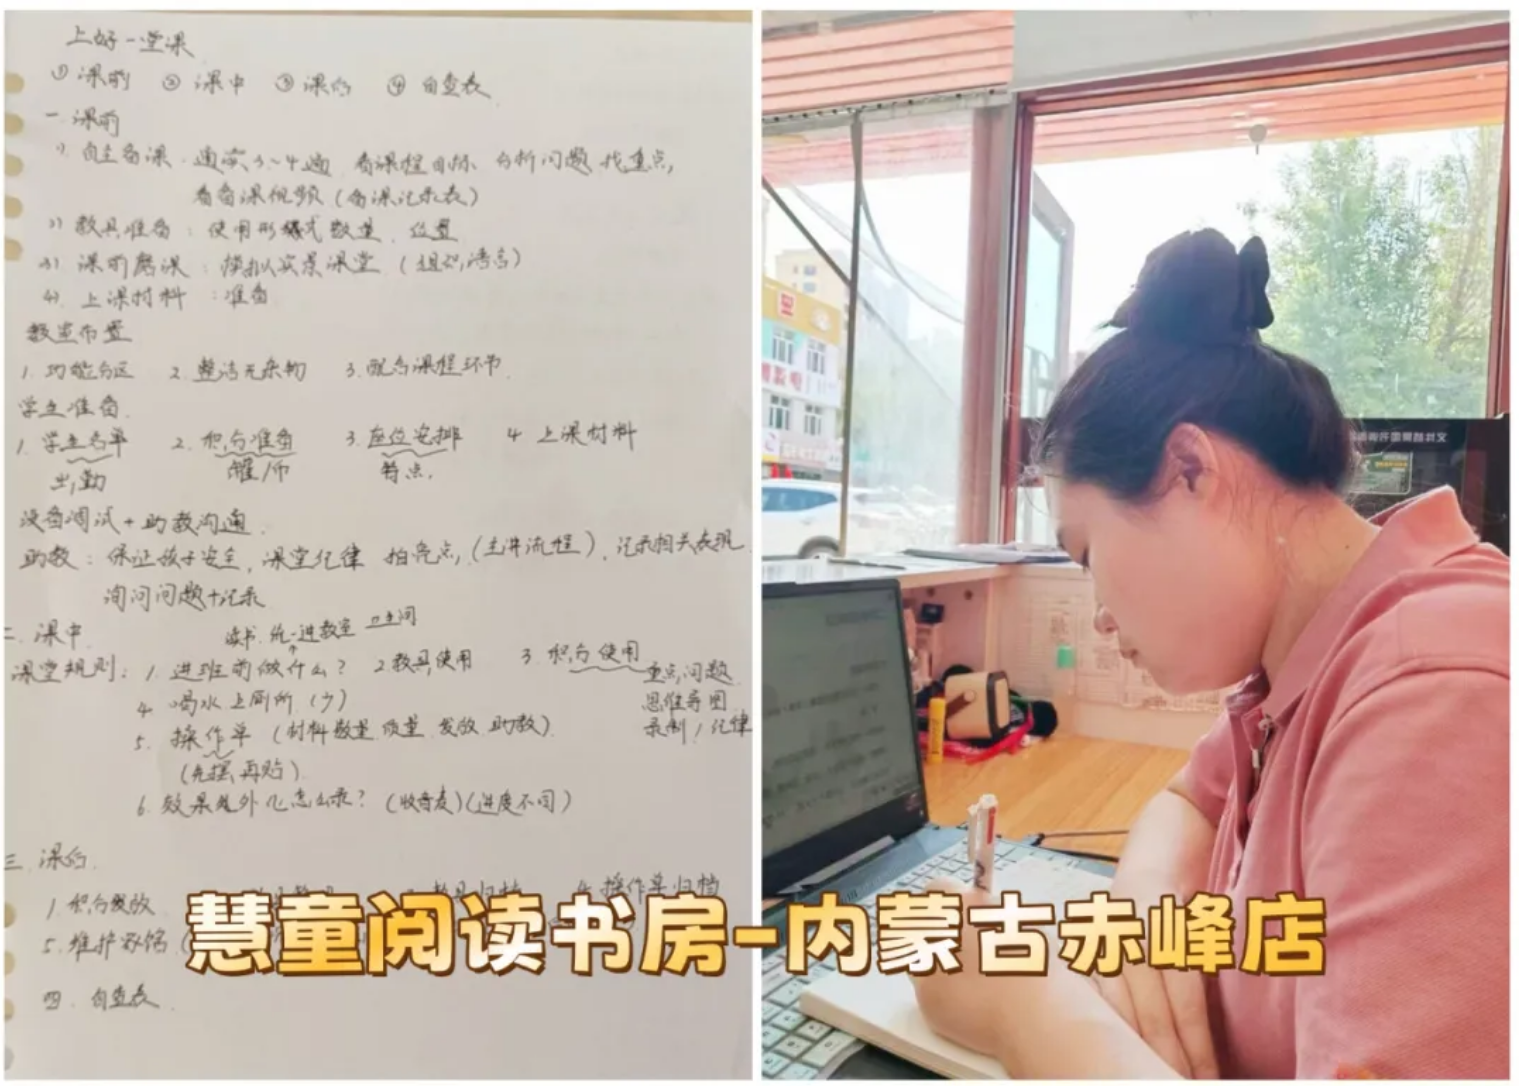 上好一堂课
① 课前 ② 课中 ③ 课后 ④ 自查表
一 课前
1) 自主备课：通读3~4遍 看课程目标 分析问题 找重点，
看备课视频（备课记录表）
2) 教具准备：使用形式 数量、位置
3) 课前磨课：模拟实景课堂（组织，语言）
4) 上课材料：准备
教室布置
1. 功能分区 2. 整洁无杂物 3. 配合课程环节.
学生准备.
1. 学生名单 2. 积分准备 3. 座位安排 4 上课材料
出勤 罐/币 特点.
设备调试+助教沟通.
助教：保证孩子安全，课堂纪律 拍亮点，（主讲流程），记录相关表现
询问问题+记录
二 课中 读书 统一进教室 卫生间
课堂规则：1. 进班前做什么？ 2 教具使用 3. 积分使用
重点，问题
4 喝水上厕所（少） 思维导图
5. 操作单（材料数量 质量 发放 助教） 录制，纪律
（先摆，再贴）
6. 效果意外化怎么录？（收音麦）（进度不同）
三 课后.
1. 积分发放 4. 操作单归档
5. 维护
四. 自查表.
慧童阅读书房-内蒙古赤峰店